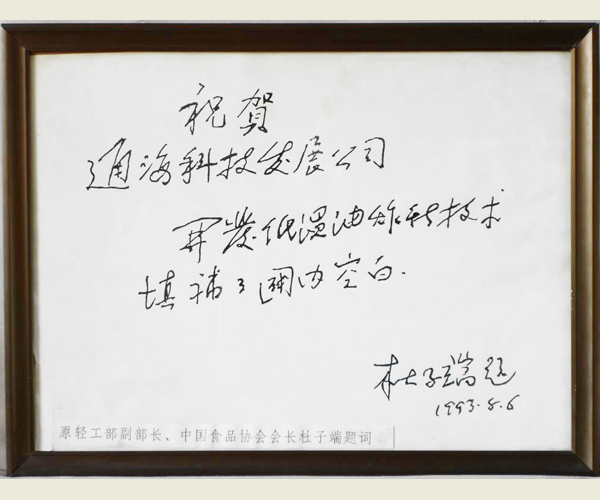 祝贺
通海科技发展公司
开发低温油炸新技术
填补了国内空白.
杜子端题
1993.8.6
原轻工部副部长、中国食品协会会长杜子端题词